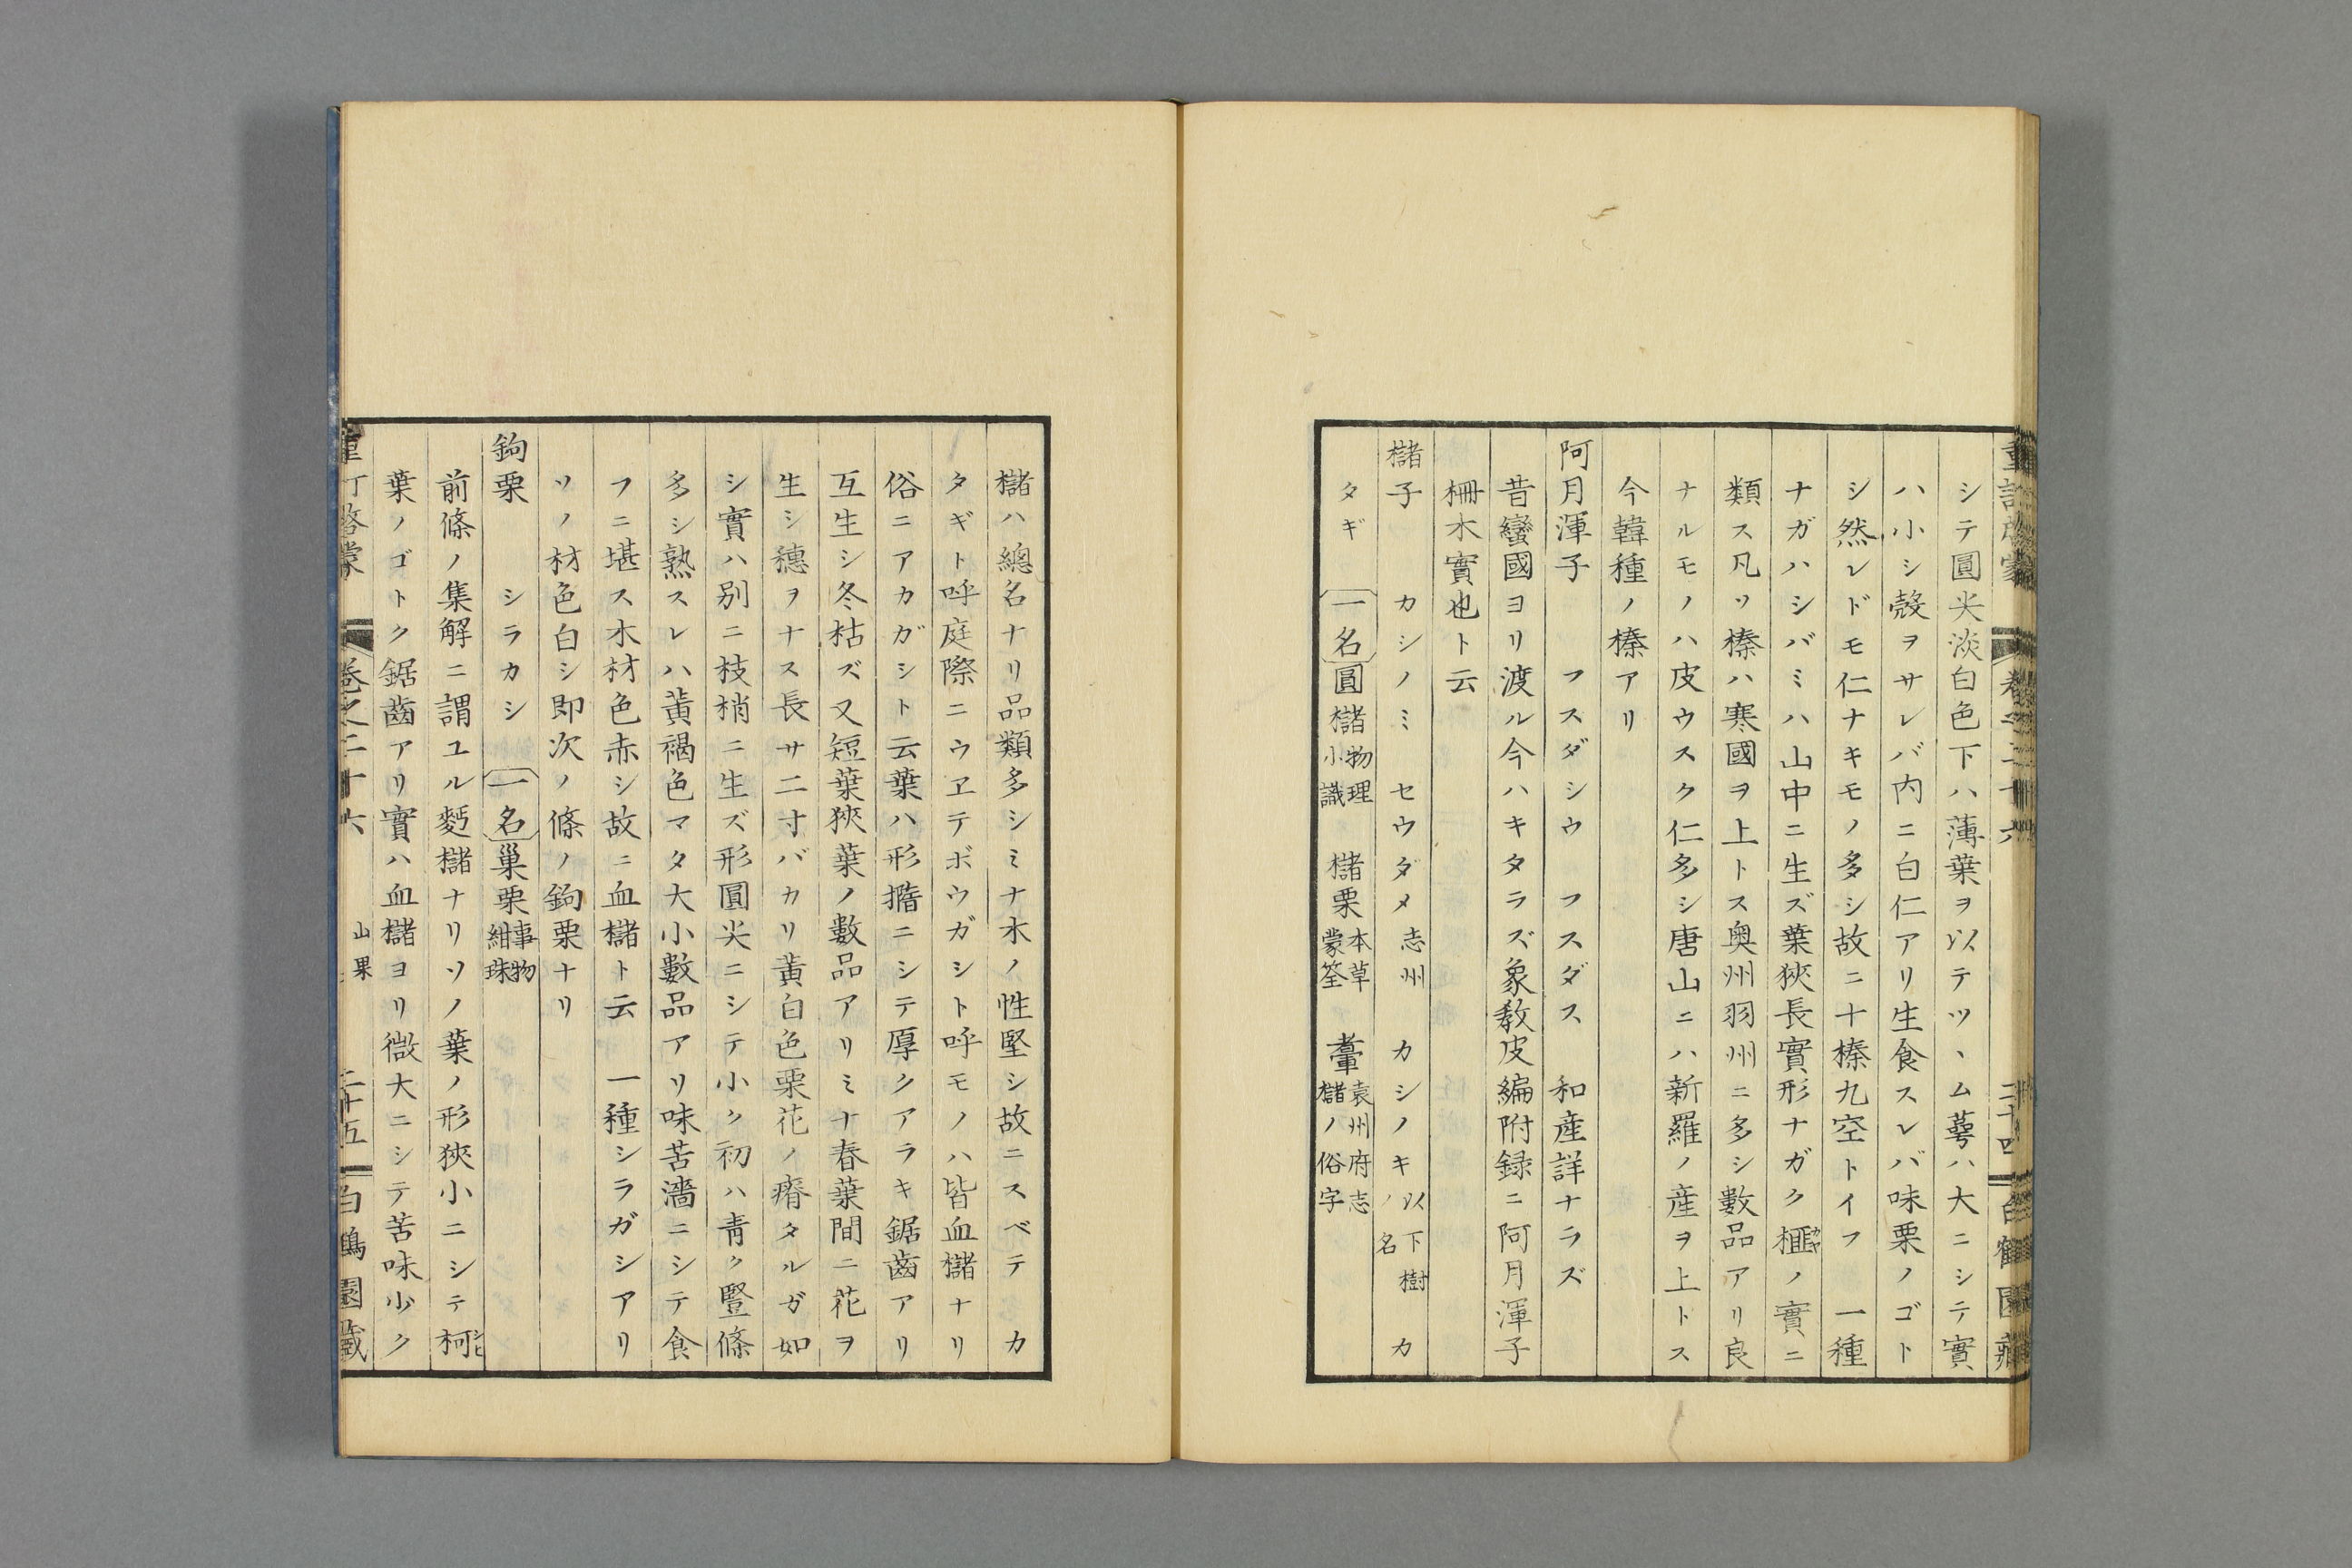 シテ圓尖淡白色下ハ薄葉ヲ以テツヽム蕚ハ大ニシテ實
ハ小シ殻ヲサレバ内ニ白仁アリ生食スレバ味栗ノゴト
シ然レドモ仁ナキモノ多シ故ニ十榛九空トイフ 一種
ナガハシバミハ山中ニ生ズ葉狹長實形ナガク榧ノ實ニ
類ス凡ソ榛ハ寒國ヲ上トス奥州羽州ニ多シ數品アリ良
ナルモノハ皮ウスク仁多シ唐山ニハ新羅ノ産ヲ上トス
今韓種ノ榛アリ
阿月渾子 フスダシウ フスダス 和産詳ナラズ
昔蠻國ヨリ渡ル今ハキタラズ象教皮編附録ニ阿月渾子
柵木實也ト云
櫧子 カシノミ セウダメ志州 カシノキ以下樹ノ名 カ
タギ 一名圓櫧物理小識 櫧栗本草蒙筌 袁州府志櫧ノ俗字
櫧ハ總名ナリ品類多シミナ木ノ性堅シ故ニスベテカ
タギト呼庭際ニウヱテボウガシト呼モノハ皆血櫧ナリ
俗ニアカガシト云葉ハ形撍ニシテ厚クアラキ鋸齒アリ
互生シ冬枯ズ又短葉狹葉ノ數品アリミナ春葉間ニ花ヲ
生シ穗ヲナス長サ二寸バカリ黄白色栗花ノ瘠タルガ如
シ實ハ別ニ枝梢ニ生ズ形圓尖ニシテ小ク初ハ青ク豎條
多シ熟スレハ黄褐色マタ大小數品アリ味苦濇ニシテ食
フニ堪ス木材色赤シ故ニ血櫧ト云 一種シラガシアリ
ソノ材色白シ即次ノ條ノ鉤栗ナリ
鉤栗 シラカシ 一名巢栗事物紺珠
前條ノ集解ニ謂ユル麪櫧ナリソノ葉ノ形狹小ニシテ柯シヒ
葉ノゴトク鋸齒アリ實ハ血櫧ヨリ微大ニシテ苦味少ク
卷之二十六 山果 二十五